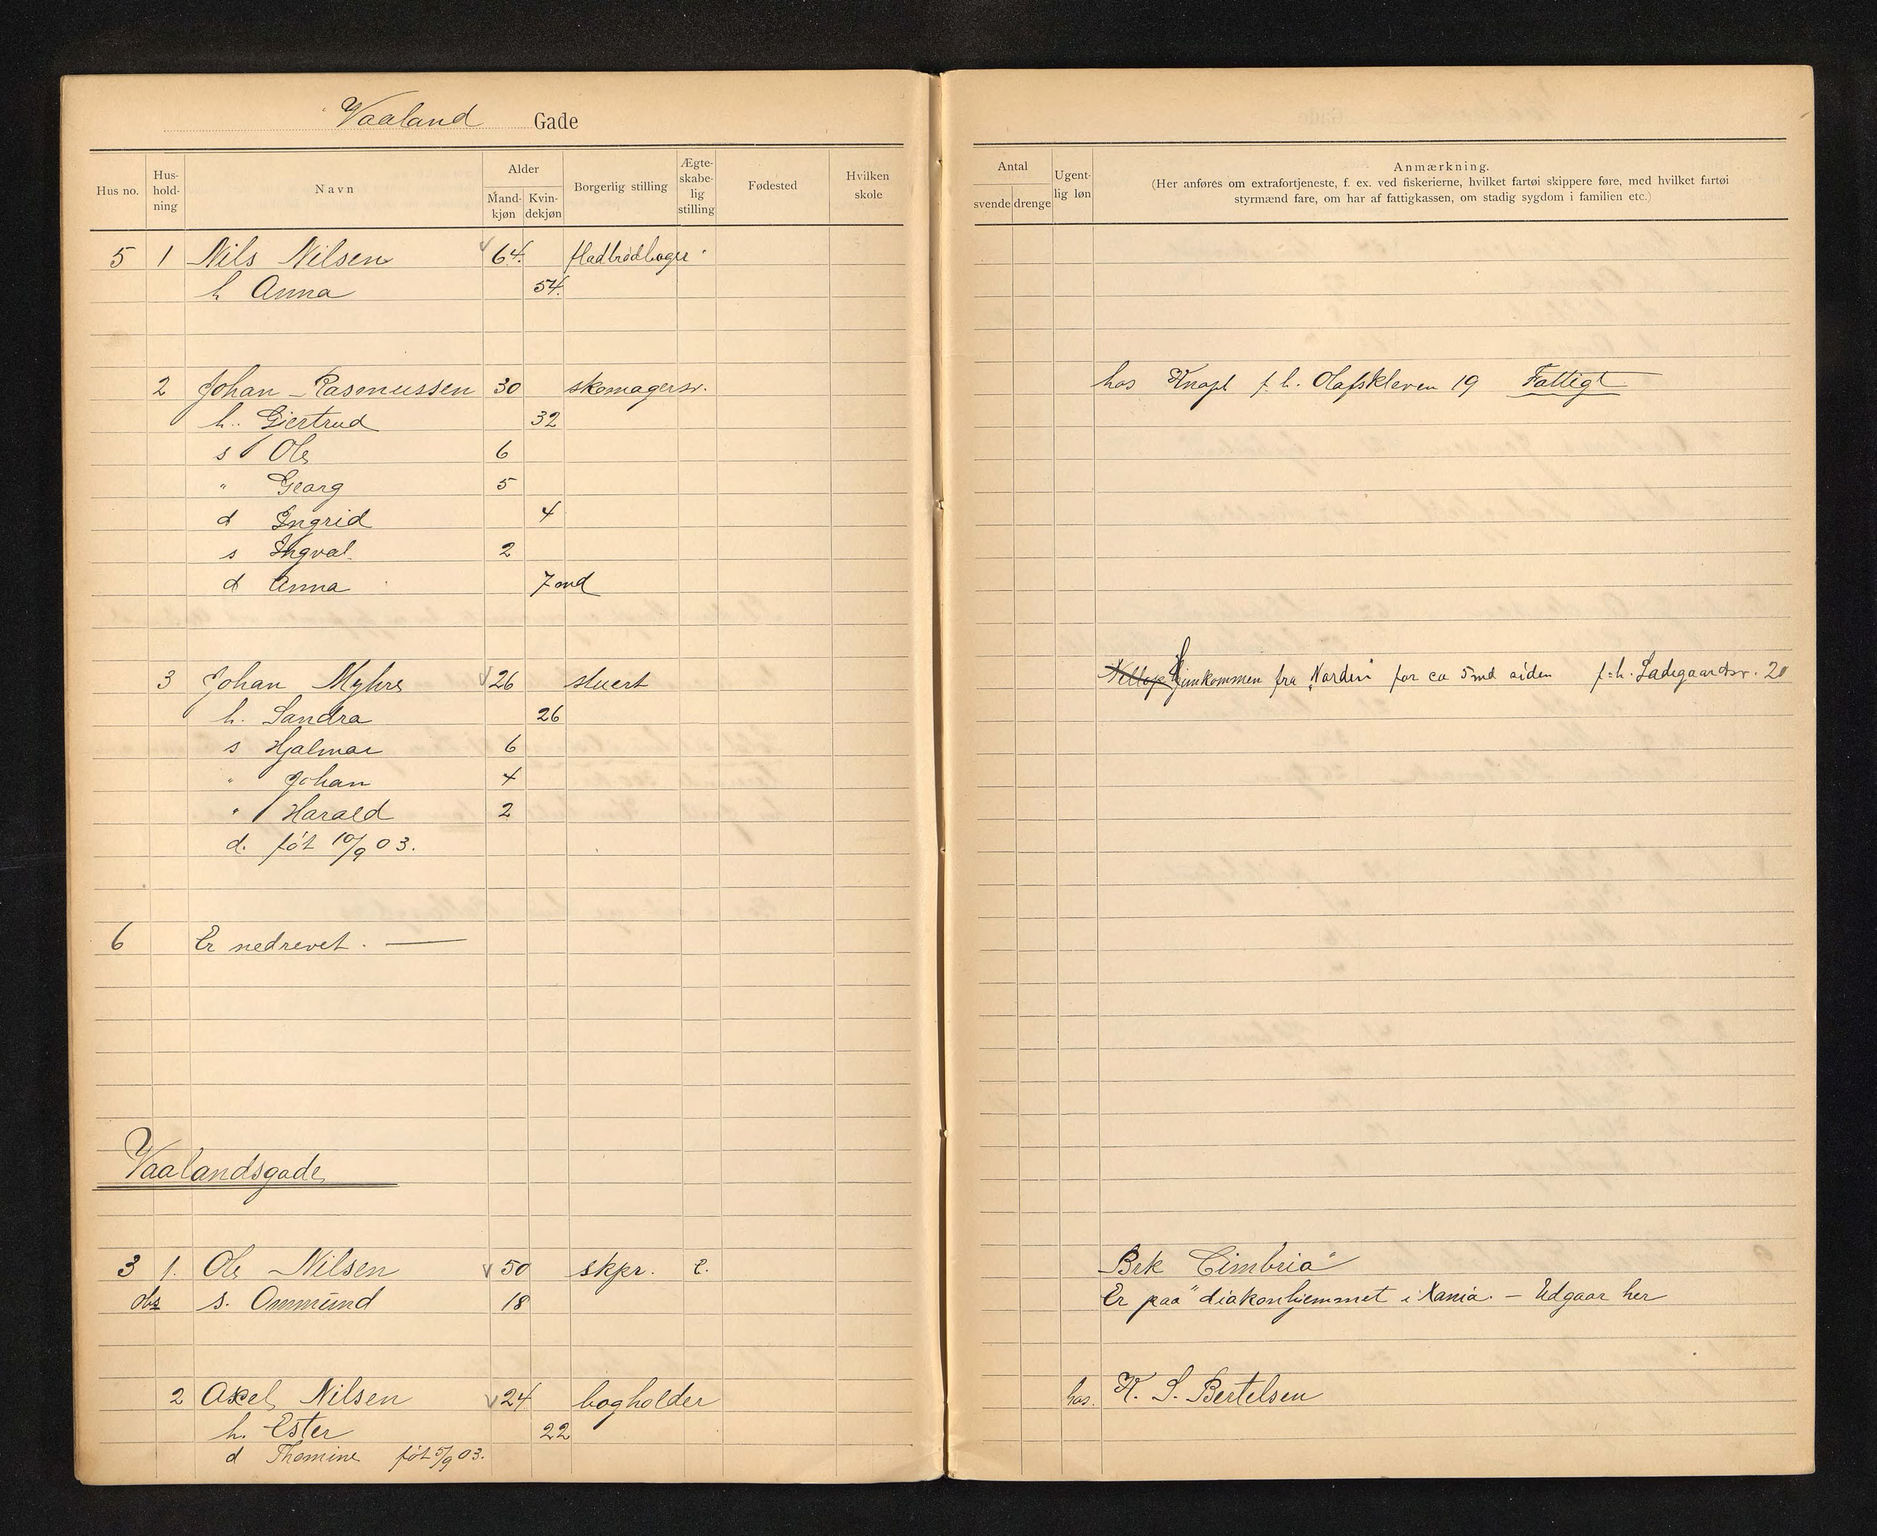 Vaaland Gade
Hus no. Hus-hold-ning Navn Alder Mand-kjøn Kvin-dekjøn Borgerlig stilling Ægte-skabe-lig stilling Fødested Hvilken skole
Antal svende drenge Ugent-lig løn Anmærkning.
(Her anføres om extrafortjeneste, f. ex. ved fiskerierne, hvilket fartøi skippere føre, med hvilket fartøi
styrmænd fare, om har af fattigkassen, om stadig sygdom i familien etc.)
5 1 Nils Nilsen 64. fladbrødbager
h Anna 54.
2 Johan Rasmussen 30 skomagersv. hos Knapl f. h. Olafskleven 19 Fattigt
h. Gjertrud 32
s Ole 6
" Georg 5
d Ingrid 4
s Ingval 2
d Anna 7 md
3 Johan Myhre 26 stuert Hjemkommen fra "Norden" for ca 5 md siden f. h. Ladegaardsv. 20
h. Sandra 26
s Hjalmar 6
" Johan 4
" Harald 2
d. føt 10/9 03.
6 Er nedrevet.
Vaalandsgade
3 1. Ole Nilsen 50 skpr. e. Brk "Cimbria"
obs s. Ommund 18 Er paa diakonhjemmet i Xania. — Udgaar her
2 Axel Nilsen 24 bogholder hos. K. S. Bertelsen
h. Ester 22
d Thomine føt 5/9 03.